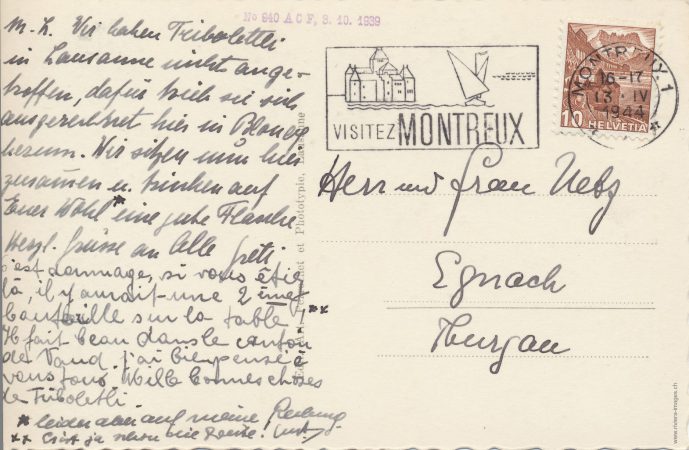 No 940 A C F, 3. 10. 1939
M. L. Wir haben Tribolettli
in Lausanne nicht ange-
troffen, dafür trieb sie sich
ausgerechnet hier in Blonay
herum. Wir sitzen nun hier
zusammen u. trinken auf
Euer Wohl * eine gute Flasche
Herzl. Grüsse an Alle Greti
C'est dommage, si vous étiez
là, il y aurait une 2 èmes
bouteille sur la table! **
Il fait beau dans le canton
de Vaud. j'ai bien pensé à
vous tous Mille bonnes choses
de Triboletli
* leider aber auf meine Rechnung.
** C'ist ja schon die zweite!
et Phototypie, Lausanne
VISITEZ MONTREUX
MONTREUX 1
16-17
13. IV
1944
10 HELVETIA
Herr und Frau Uetz
Egnach
Thurgau
www.riviera-images.ch